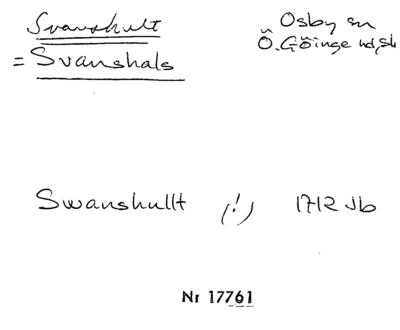 Svanshult
Osby sn
= Svanshals
Ö. Göinge hd, sk
Swanshullt (!) 1712 Jb
Nr 17761